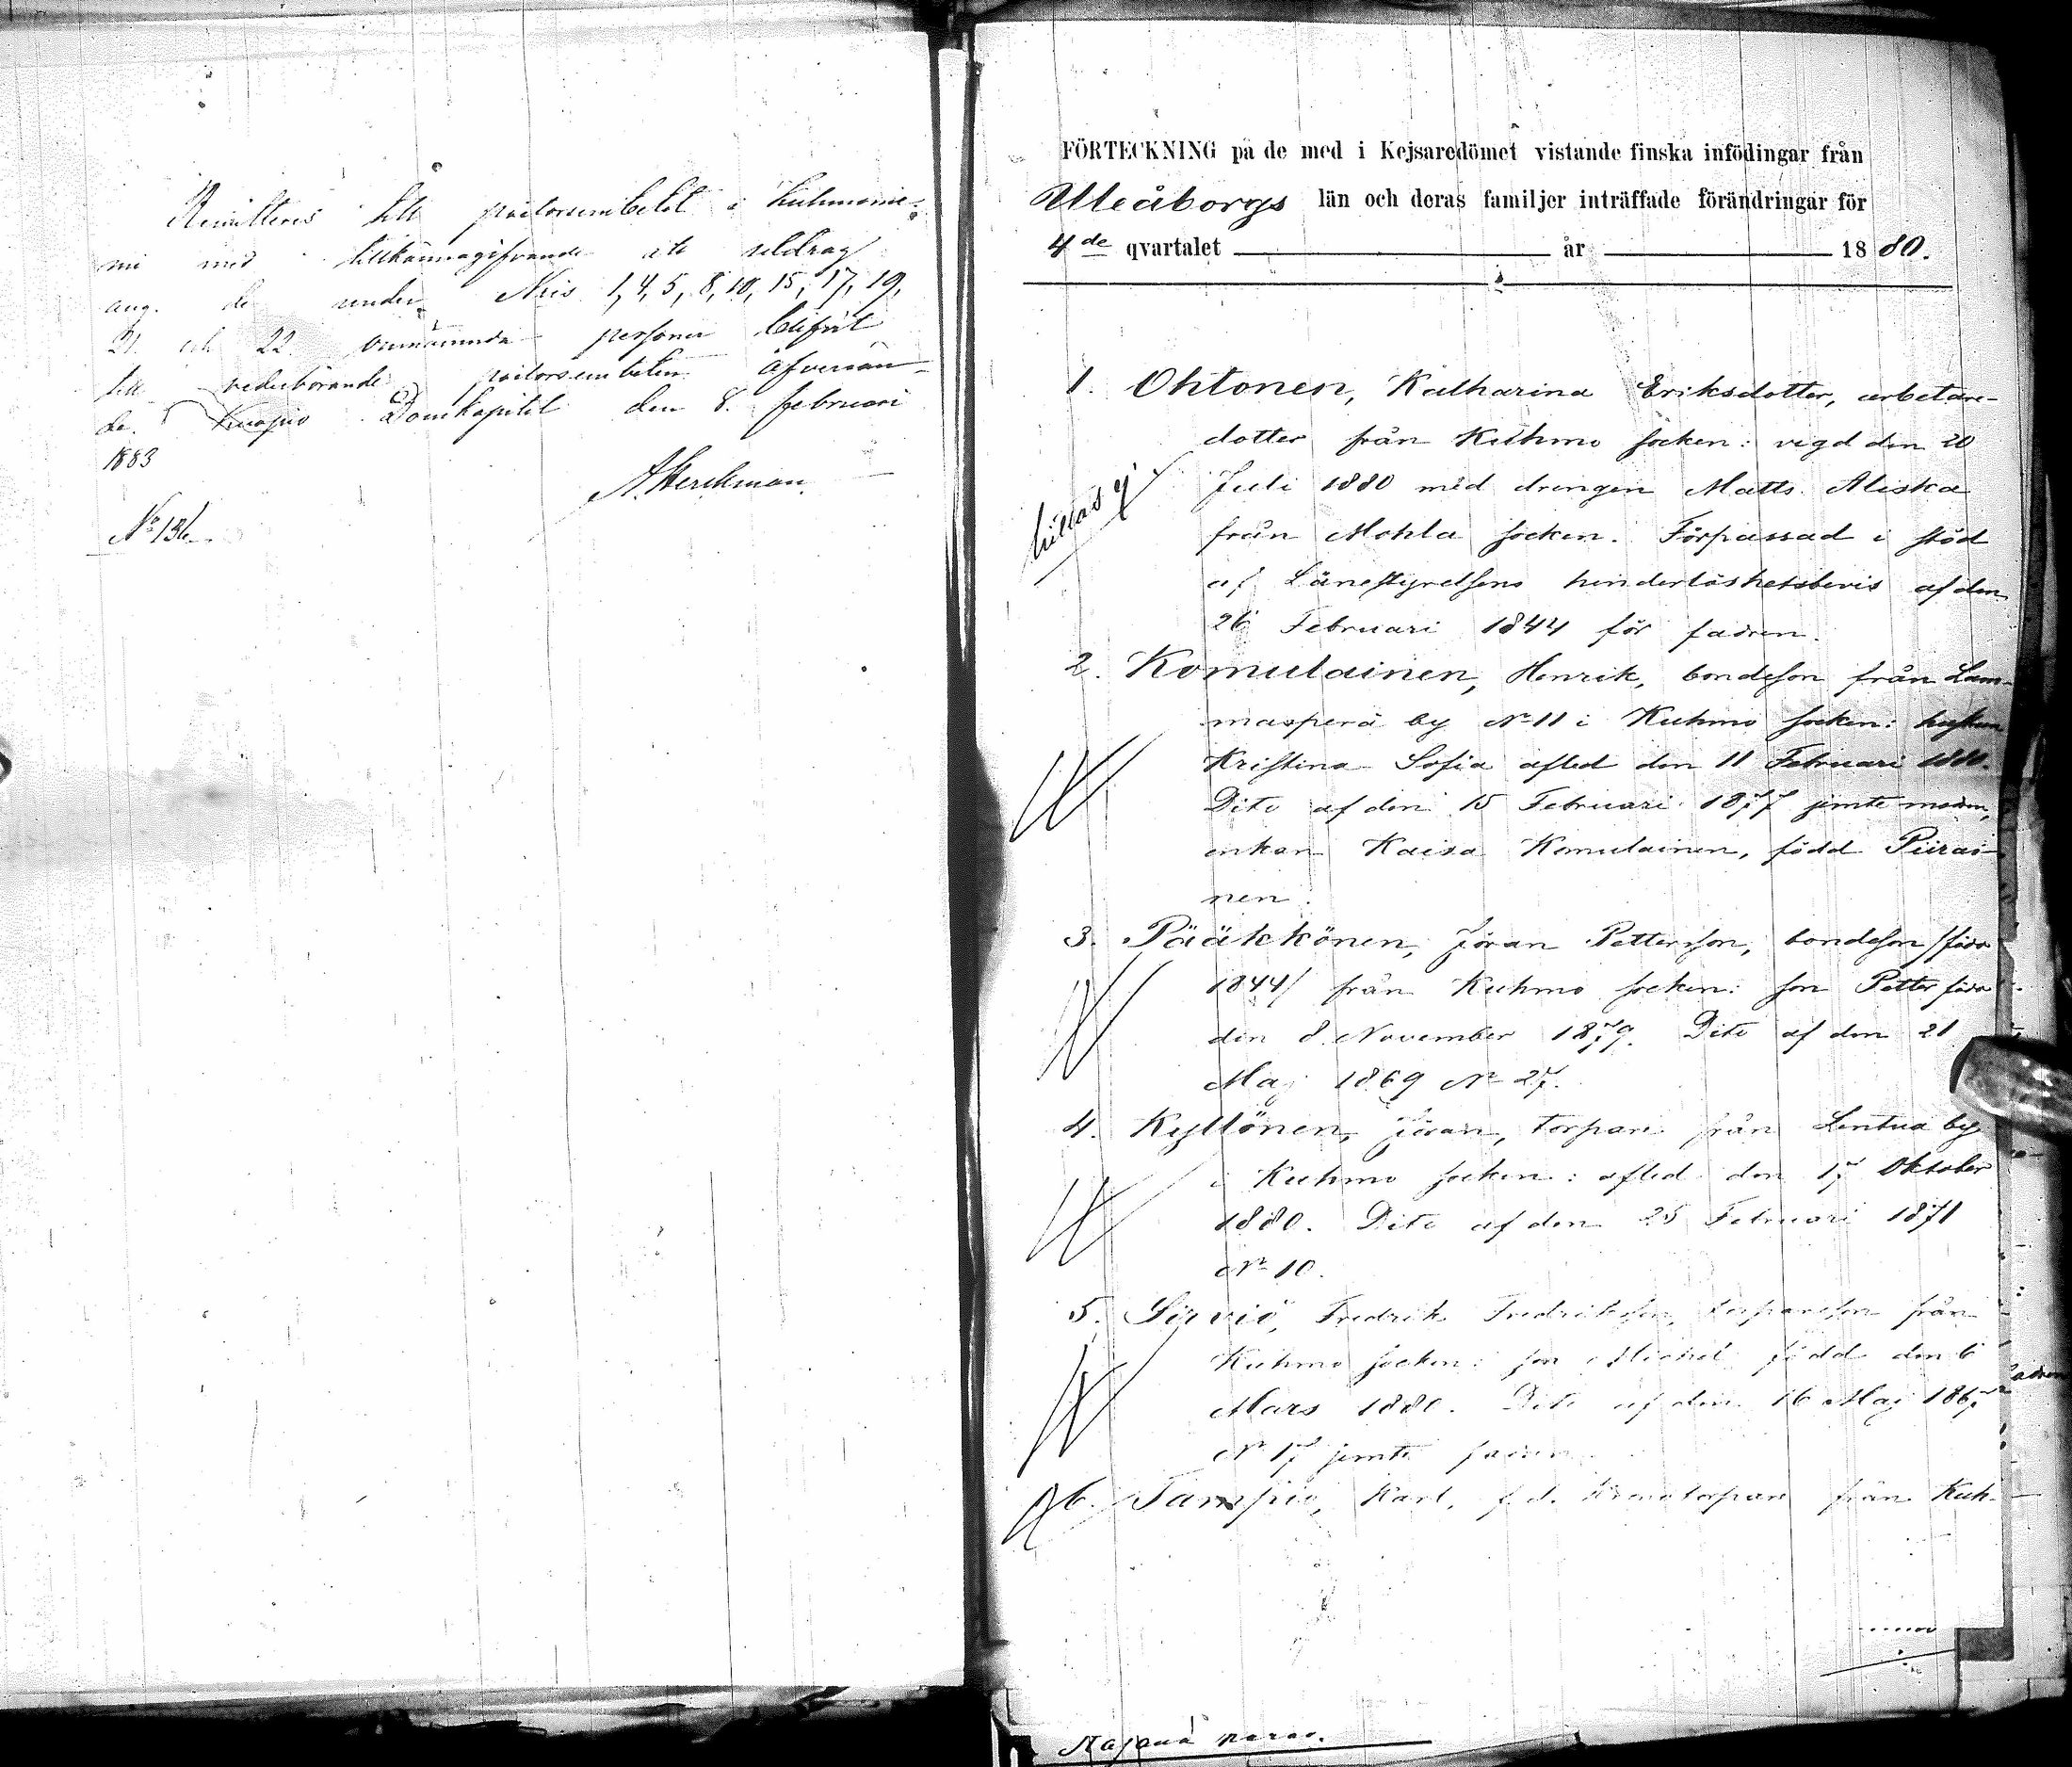 Remitteras till pastorsembetet i Kuhmonie-
mi med tillkännagifvande att utdrag
ang. de under Nris 1, 4, 5, 8, 10, 15, 17, 19,
21 och 22 omnämnda personer blifvit
till vederbörande pastorsembeten öfversän-
da. Kuopio Domkapitel den 8. februari
1883
No 136.
FÖRTECKNING på de med i Kejsaredömet vistande finska infödingar från
Uleåborgs län och deras familjer inträffade förändringar för
4de qvartalet år 1880.
1. Ohtonen, Katharina Eriksdotter, arbetare-
dotter från Kuhmo socken: vigd den 20
Juli 1880 med drengen Matts Aliska
från Mohla socken. Förpassad i stöd
af Länestyrelsens hinderlöshetsbevis af den
26 Februari 1844 för fadren.
hittas ej
2. Komulainen, Henrik, bondeson från Lam-
masperä by No 11 i Kuhmo socken: hustrun
Kristina Sofia afled den 11 Februari 1880.
Dito af den 15 Februari 1877 jemte modren,
enkan Kaisa Komulainen, född Piirai-
nen.
3. Pääkkönen, Jöran Pettersson, bondeson /född
1844/ från Kuhmo socken: son Petter född
den 8 November 1879. Dito af den 21
Maj 1869 No 27.
4. Kyllönen, Jöran, torpare från Lentua by
i Kuhmo socken: afled den 17 Oktober
1880. Dito af den 25 Februari 1871
No 10.
5. Sirviö, Fredrik Fredriksson, torpareson från
Kuhmo socken: son Michel född den 6
Mars 1880. Dito af den 16 Maj 1867
No 17 jemte fadren.
6. Tampio, Karl, f.d. Kronotorpare från Kuh-